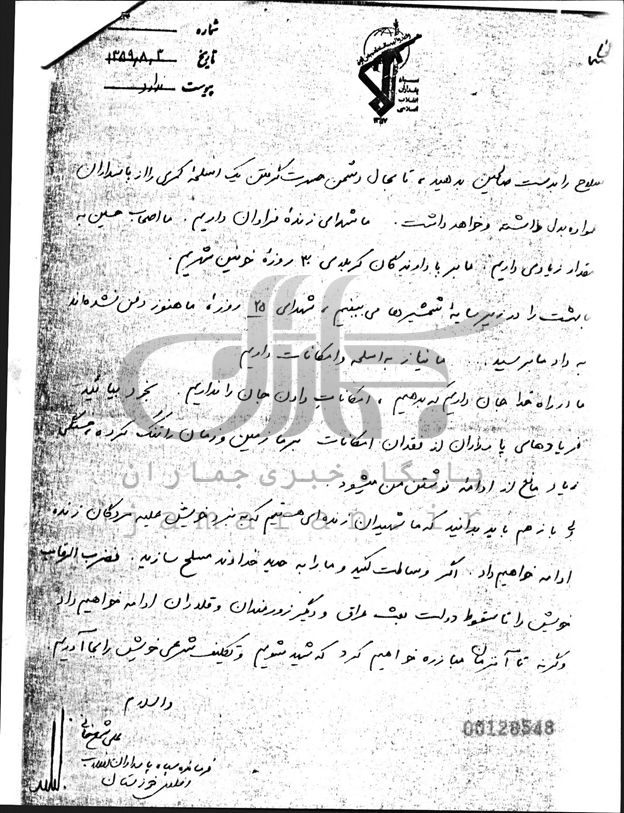 شماره
تاریخ ۱۳۵۹٫۸٫۳
پیوست ندارد
سپاه
پاسداران
انقلاب
اسلامی
۱۳۵۷
سلاح را بدست صالحین بدهید، تا بحال دشمن حسرت گرفتن یک اسلحه کمری را از پاسداران
بدل داشته و خواهد داشت. ما شهدای زنده فراوان داریم. ما اصحاب حسین به
مقدار زیادی داریم. ما سربازندگان کربلای ۳۰ روزه خونین شهریم.
ما بهشت را در زیر سایه شمشیرها می بینیم، شهدای ۲۵ روزه ما هنوز دفن نشده‌اند
به داد ما برسید... ما نیاز به اسلحه و امکانات داریم
ما در راه خدا جان داریم که بدهیم، امکانات دادن جان را نداریم. بخود بیائید
فریادهای پاسداران از فقدان امکانات سرما زمین و زمان را تنگ کرده، خستگی
زیاد مانع از ادامه نوشتن من میشود
جماران
پایگاه خبری جماران
jamaran.ir
ولی باز هم باید بدانید که ما شهیدان زنده‌ای هستیم که به نبرد خویش علیه مردگان زنده
ادامه خواهیم داد. اگر وساطت کنید و ما را به حدید خداوند مسلح سازید. فضرب الرقاب
خویش را تا سقوط دولت بعث عراق و دیگر زورمندان و قلدران ادامه خواهیم داد
وگرنه تا آنزمان مبارزه خواهیم کرد که شهید شویم و تکلیف شرعی خویش را بجا آوریم.
والسلام
علی شمخانی
فرمانده سپاه پاسداران انقلاب
اسلامی خوزستان
00128548